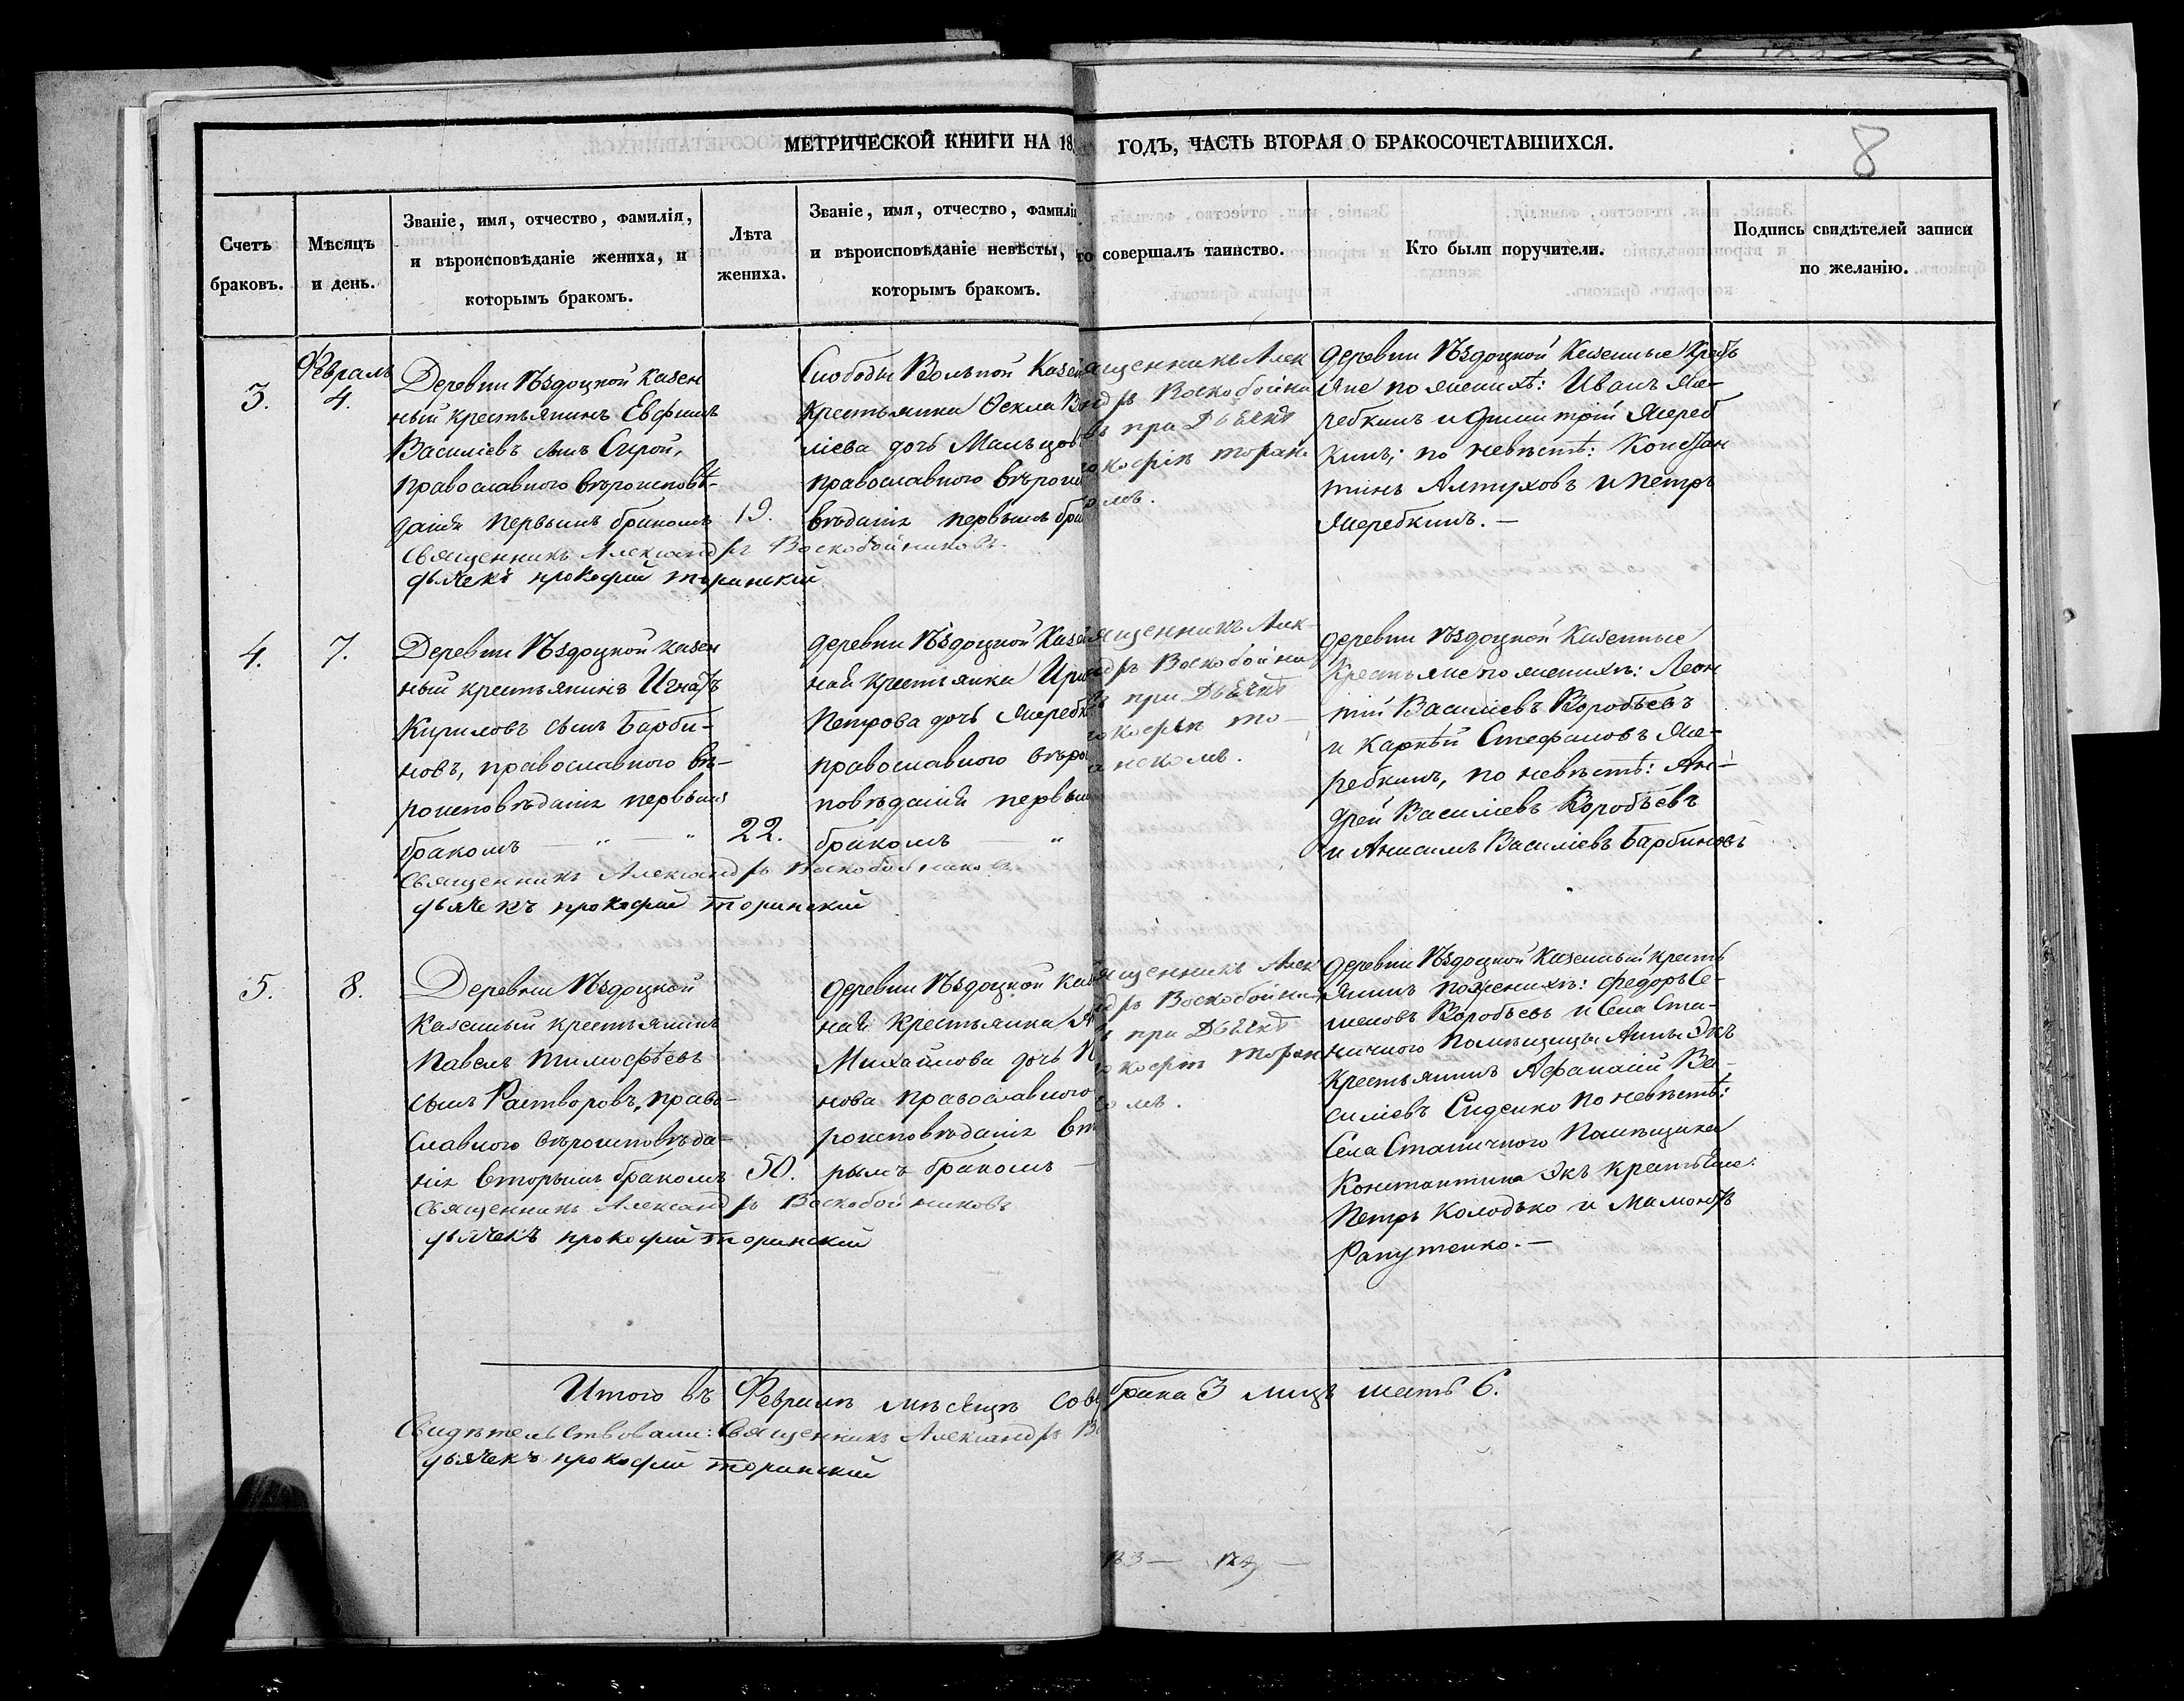 МЕТРИЧЕСКОЙ КНИГИ НА 18
ГОДЪ, ЧАСТЬ ВТОРАЯ О БРАКОСОЧЕТАВШИХСЯ.
8
Счетъ
браковъ.
Мѣсяцъ
и день.
Званіе, имя, отчество, фамилія,
и вѣроисповѣданіе жениха, и
которымъ бракомъ.
Лѣта
жениха.
Званіе, имя, отчество, фамилі
и вѣроисповѣданіе невѣсты,
которымъ бракомъ.
то совершалъ таинство.
Кто были поручители.
Подпись свидѣтелей записи
по желанію.
3.
Февраль
4.
Деревни Ѣздоцкой казен
ный крестьянинъ Евфимъ
Василіевъ сынъ Сирой,
православного вѣроисповѣ-
данія первымъ бракомъ
19.
Слободы Вольной Казен
крестьянка Ѳекла Ва
ліева дочь Мальцов
православного вѣроис
вѣданія первымъ бра
ященникъ Алек
ндръ Воскобойни
въ при Дьячкѣ
окофіѣ торан
омъ.
деревни Ѣздоцкой Казенные Крестъ
яне по женихѣ: Иванъ Же-
ребкинъ и Димитрій Жереб
кинъ; по невѣстѣ: Констан
тинъ Алтуховъ и Петръ
Жеребкинъ. —
Священникъ Александръ Воскобойниковъ.
дьячекъ прокофій торинскій
4.
7.
Деревни Ѣздоцкой казен
ный крестьянинъ Игнатъ
Кириловъ сынъ Барби-
новъ, православного вѣ-
роисповѣданія первымъ
бракомъ — " — "
22.
деревни Ѣздоцкой Казен
ная крестьянка Ири
Петрова дочь Жеребк
православного вѣро
повѣданія первым
бракомъ — "
ященникъ Алек-
ндръ Воскобойни
въ при Дьячкѣ
окофіѣ то-
нскомъ.
деревни Ѣздоцкой Казенные
Крестьяне по женихѣ: Леон
тій Василіевъ Воробьевъ
и Карпѣй Стефановъ Же-
ребкинъ, по невѣстѣ: Ан-
дрей Василіевъ Воробьевъ
и Анисимъ Василіевъ Барбиновъ
Священникъ Александръ Воскобойниковъ
дьячекъ прокофій торинскій
5.
8.
Деревни Ѣздоцкой
Казенный крестьянинъ
Павелъ Тимофѣевъ
сынъ Растворовъ, право-
славного вѣроисповѣда-
нія вторымъ бракомъ
50.
деревни Ѣздоцкой Каз
ная крестьянка
Михайлова дочь
нова православного
роисповѣданія вт
рымъ бракомъ —
ященникъ Алек
ндръ Воскобойни
въ при Дьячкѣ
окофіѣ торан
омъ.
деревни Ѣздоцкой Казенный кресть
янинъ по женихѣ: Федоръ Се-
меновъ Воробьевъ и Села Ста-
ничного Помѣщицы Анны Экъ
Крестьянинъ Афанасій Ва-
силіевъ Сиденко по невѣстѣ:
Села Станичного Помѣщика
Константина Экъ крестьяне:
Петръ Колодько и Мамонтъ
Рапутенко. —
Священникъ Александръ Воскобойниковъ
дьячекъ прокофій торинскій
Итого въ Февралѣ мѣсяцѣ сове брака 3 лицъ шесть 6.
Свидѣтельствовали: Священникъ Александръ В
дьячекъ прокофій торинскій